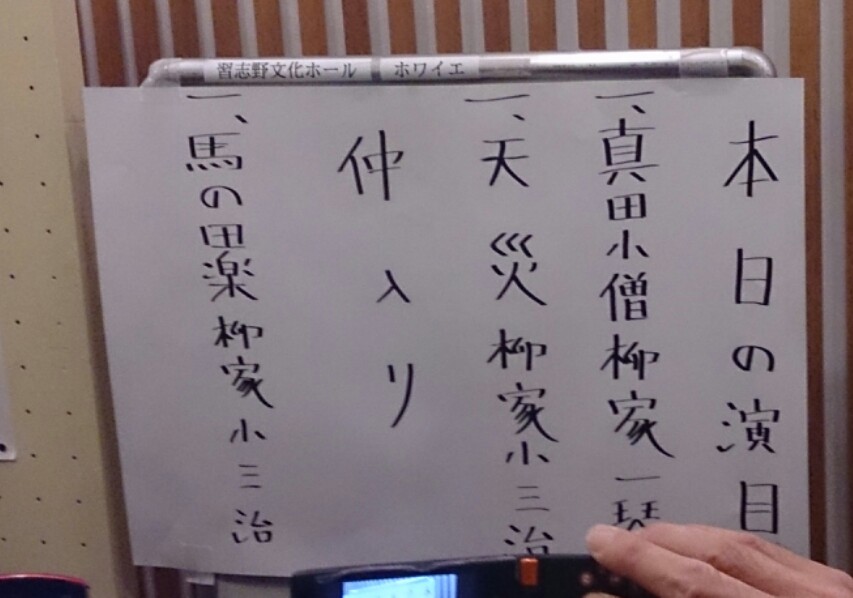 習志野文化ホール ホワイエ
本日の演目
一、真田小僧 柳家一琴
一、天災 柳家小三治
仲入り
一、馬の田楽 柳家小三治